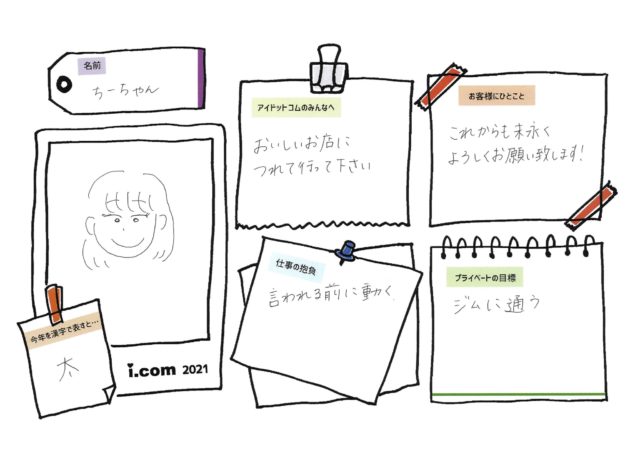 名前
ちーちゃん
アイドットコムのみんなへ
おいしいお店に
つれて行って下さい
お客様にひとこと
これからも末永く
よろしくお願い致します!
今年を漢字で表すと…
太
i.com 2021
仕事の抱負
言われる前に動く
プライベートの目標
ジムに通う